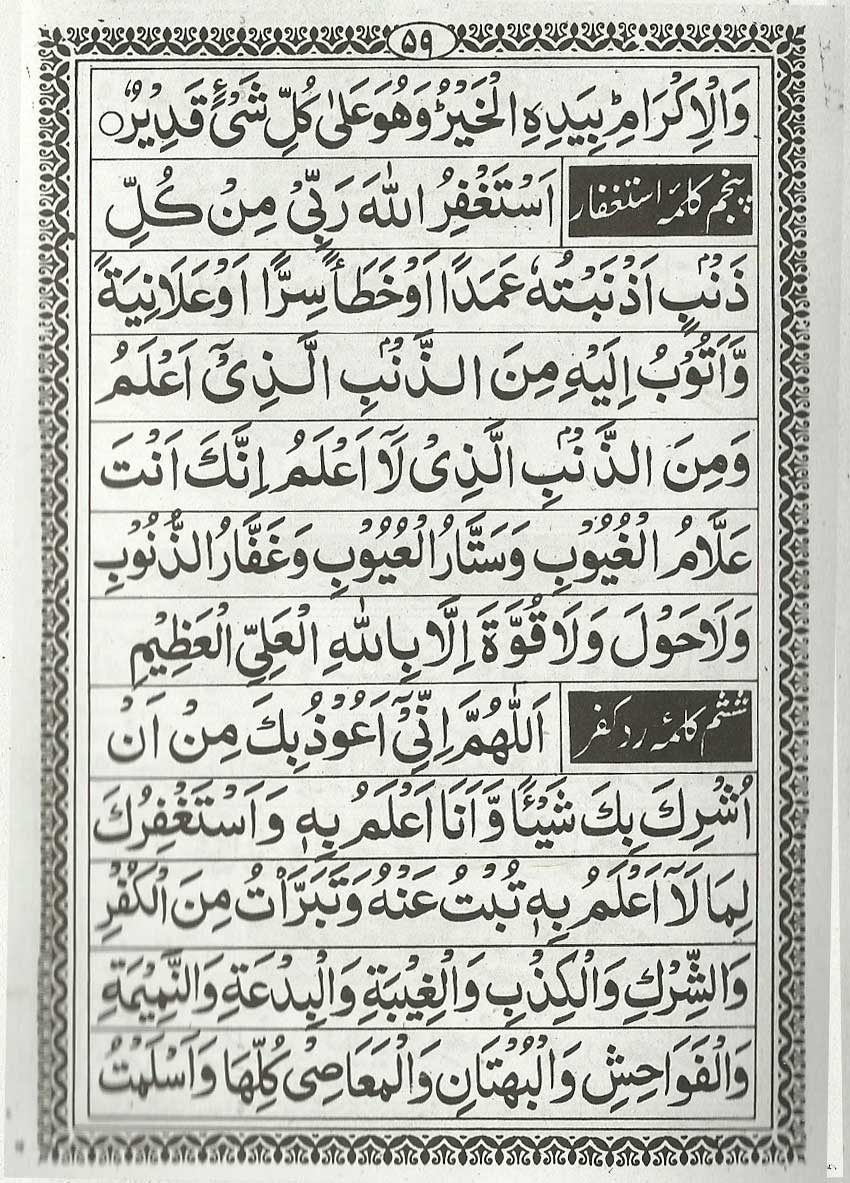 ۵۹
وَالْاِكْرَامِؕ بِيَدِهِ الْخَيْرُؕ وَهُوَ عَلٰى كُلِّ شَیْءٍ قَدِيْرٌ○
پنجم کلمۂ استغفار اَسْتَغْفِرُ اللّٰهَ رَبِّیْ مِنْ كُلِّ
ذَنْۢبٍ اَذْنَبْتُهٗ عَمَدًا اَوْ خَطَأً سِرًّا اَوْ عَلَانِيَةً
وَّاَتُوْبُ اِلَيْهِ مِنَ الذَّنْۢبِ الَّذِیْۤ اَعْلَمُ
وَمِنَ الذَّنْۢبِ الَّذِیْ لَاۤ اَعْلَمُ اِنَّكَ اَنْتَ
عَلَّامُ الْغُيُوْبِ وَسَتَّارُ الْعُيُوْبِ وَغَفَّارُ الذُّنُوْبِ
وَلَا حَوْلَ وَلَا قُوَّةَ اِلَّا بِاللّٰهِ الْعَلِیِّ الْعَظِيْمِ
ششم کلمۂ رد کفر اَللّٰهُمَّ اِنِّیْۤ اَعُوْذُ بِكَ مِنْ اَنْ
اُشْرِكَ بِكَ شَيْئًا وَّاَنَا اَعْلَمُ بِهٖ وَاَسْتَغْفِرُكَ
لِمَا لَاۤ اَعْلَمُ بِهٖ تُبْتُ عَنْهُ وَتَبَرَّاْتُ مِنَ الْكُفْرِ
وَالشِّرْكِ وَالْكِذْبِ وَالْغِيْبَةِ وَالْبِدْعَةِ وَالنَّمِيْمَةِ
وَالْفَوَاحِشِ وَالْبُهْتَانِ وَالْمَعَاصِیْ كُلِّهَا وَاَسْلَمْتُ